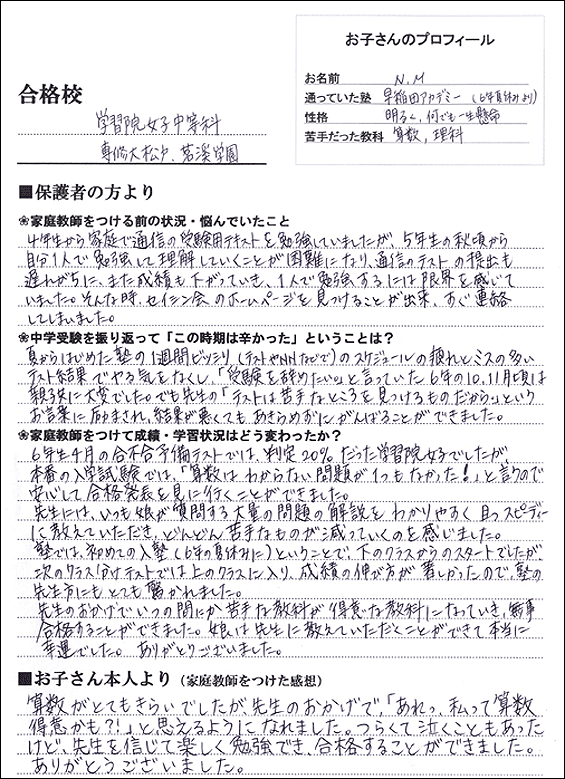 お子さんのプロフィール
お名前 N.M
通っていた塾 早稲田アカデミー(6年夏休みより)
性格 明るく、何でも一生懸命
苦手だった教科 算数,理科
合格校
学習院女子中等科
専修大松戸、茗溪学園
■保護者の方より
❀家庭教師をつける前の状況・悩んでいたこと
4年生から家庭で通信の受験用テキストを勉強していましたが、5年生の秋頃から
自分1人で勉強して理解していくことが困難になり、通信のテストの提出も
遅れがちに、また成績も下がっていき、1人で勉強するには限界を感じて
いました。そんな時、セイシン会のホームページを見つけることが出来、すぐ連絡
してしまいました。
❀中学受験を振り返って「この時期は辛かった」ということは?
夏からはじめた塾の1週間ビッシリ(テストやNNなどで)のスケジュールの疲れとミスの多い
テスト結果でやる気をなくし、「受験を辞めたい」と言っていた6年の10,11月頃は
親子共に大変でした。でも先生の「テストは苦手なところを見つけるものだから」という
お言葉に励まされ、結果が悪くてもあきらめずにがんばることができました。
❀家庭教師をつけて成績・学習状況はどう変わったか?
6年生4月の合不合予備テストでは、判定20%だった学習院女子でしたが、
本番の入学試験では、「算数はわからない問題が1つもなかった!」と言うので
安心して合格発表を見に行くことができました。
先生には、いつも娘が質問する大量の問題の解説をわかりやすく且つスピーディー
に教えていただき、どんどん苦手なものが減っていくのを感じました。
塾では、初めての入塾(6年の夏休みに)ということで、下のクラスからのスタートでしたが、
次のクラス分けテストでは上のクラスに入り、成績の伸び方が著しかったので、塾の
先生方にもとても驚かれました。
先生のおかげでいつの間にか苦手な教科が得意な教科になっていき、無事
合格することができました。娘は先生に教えていただくことができて本当に
幸運でした。ありがとうございました。
■お子さん本人より(家庭教師をつけた感想)
算数がとてもきらいでしたが先生のおかげで、「あれっ、私って算数
得意かも?!」と思えるようになれました。つらくて泣くこともあった
けど、先生を信じて楽しく勉強でき、合格することができました。
ありがとうございました。